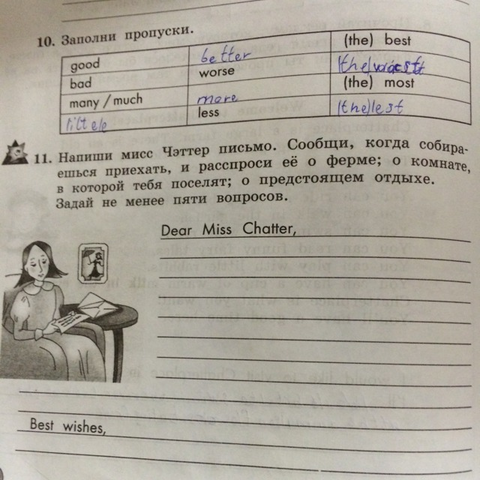 10. Заполни пропуски.
good better (the) best
bad worse (the)
many / much more (the) most
less (the)lest
11. Напиши мисс Чэттер письмо. Сообщи, когда собира-
ешься приехать, и расспроси её о ферме; о комнате,
в которой тебя поселят; о предстоящем отдыхе.
Задай не менее пяти вопросов.
Dear Miss Chatter,
Best wishes,